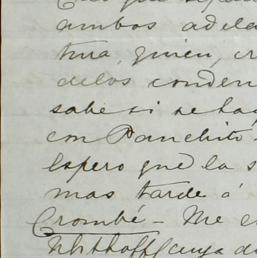 ambos adela
tura, quien, cr
delos conden
sabe si se ha
con Panchito -
Espero que la s
mas tarde á
Crombé - Me e
Uhthoff (cuya d